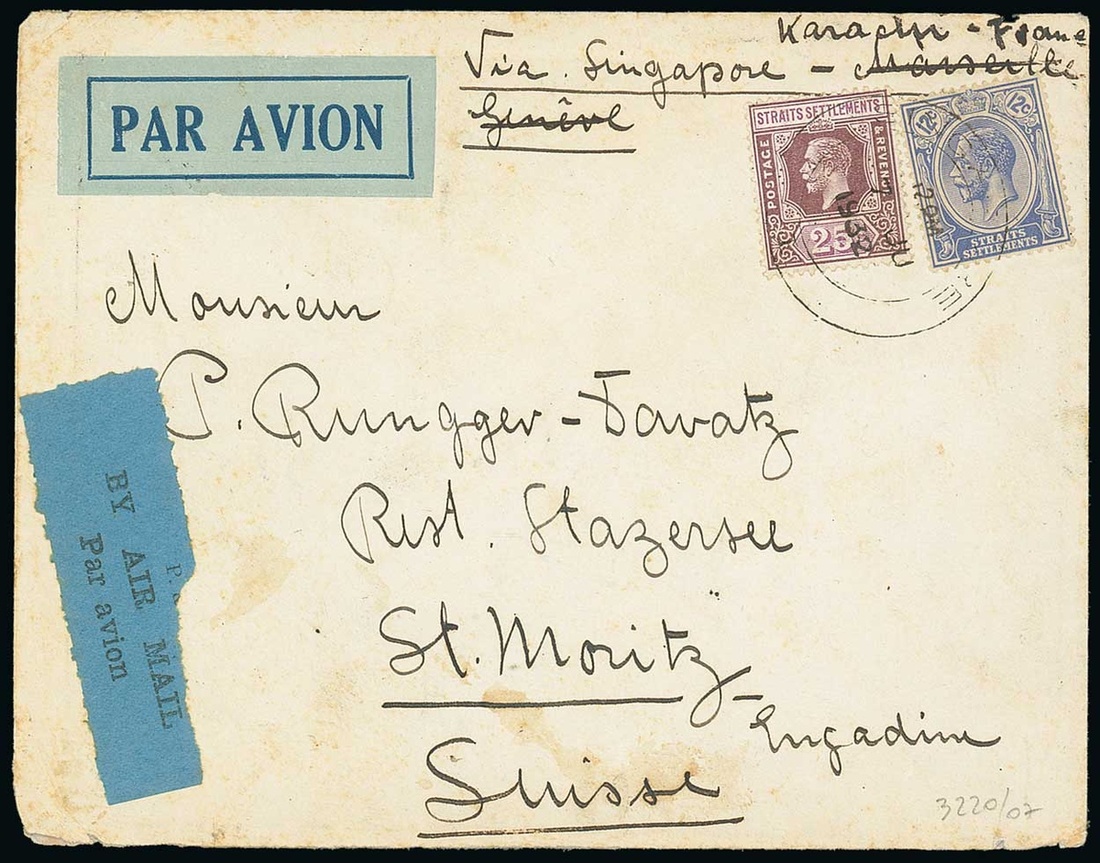 Karachi - France
Via. Singapore - Marseille
Genève
PAR AVION
STRAITS SETTLEMENTS
POSTAGE & REVENUE
25
12c 12c
STRAITS
SETTLEMENTS
2.PM
JU
1932
Monsieur
P. Rungger - Davatz
Rest. Stazersee
St. Moritz -
Engadine
Suisse
BY AIR MAIL
Par avion
3220/07